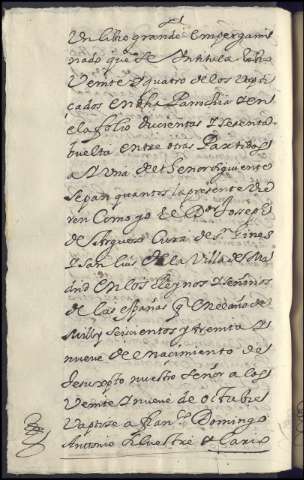 Un libro grande empergami
nado que se Yntitula libro
Veinte y quatro de los Vapti
çados en dha Parrochia y en
el a folio duçientas y sesenta
buelta entre otras Partidas
ay Una del thenor siguiente
Sepan quantos la presente vie
ren Como yo el Dor Joseph
de Arguero Cura de S. Gines
y San Luis de la Villa de Ma
drid en los Reynos y Señorios
de las españas q en el año de
Mill y seiscientos y treinta y
nueve de el naçimiento de
Jesuxpto nuestro Señor a los
Veinte y nueve de octubre
Vaptize a Franco Domingo
Antonio Silvestre